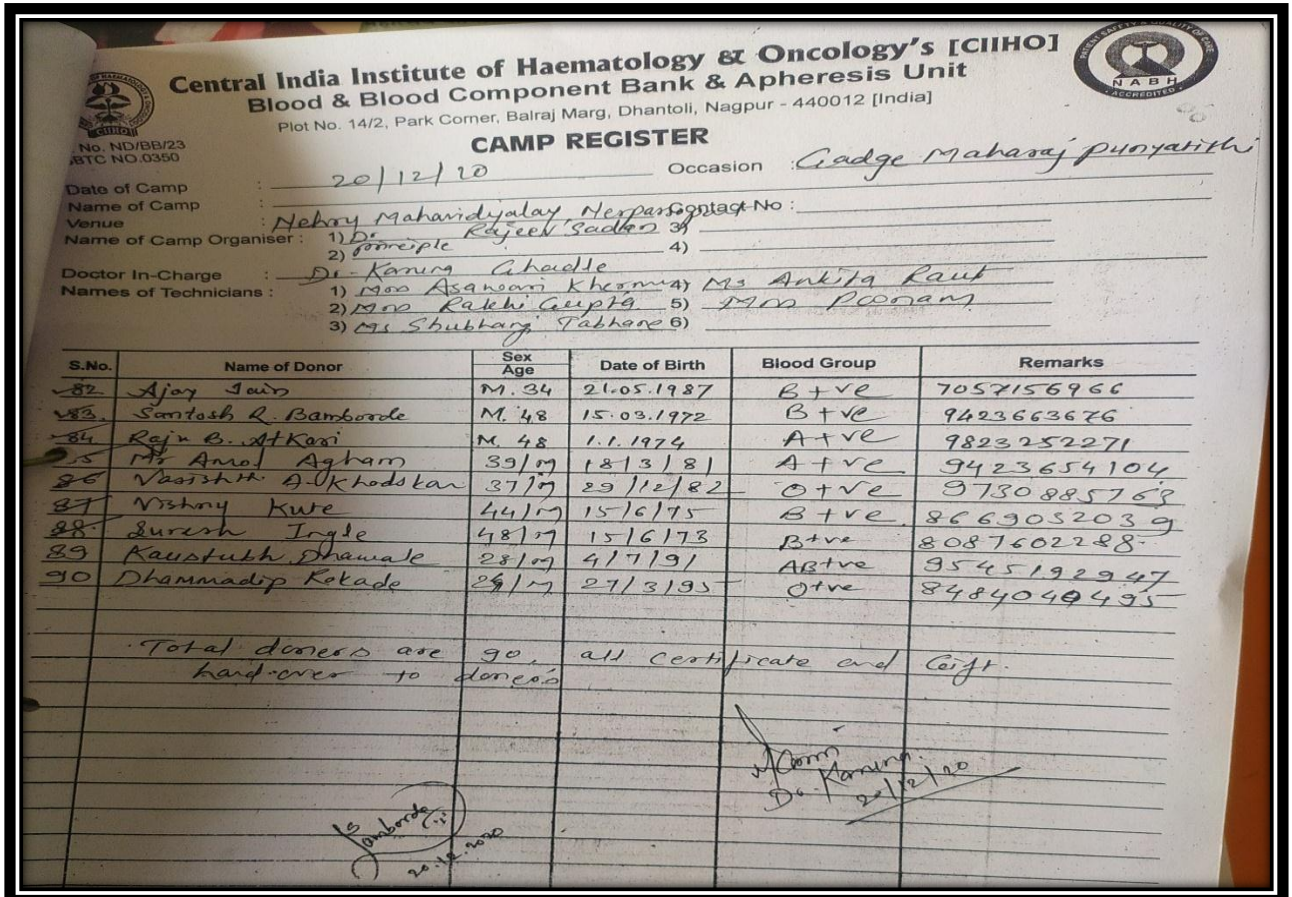 Central India Institute of Haematology & Oncology's [CIIHO]
Blood & Blood Component Bank & Apheresis Unit
Plot No. 14/2, Park Corner, Balraj Marg, Dhantoli, Nagpur - 440012 [India]
CIIHO
NABH
ACCREDITED
No. ND/BB/23
BTC NO.0350
CAMP REGISTER
Date of Camp : 20/12/20 Occasion : Gadge Maharaj punyatithi
Name of Camp : Contact No :
Venue : Nehry Mahavidyalay Nerparsopant
Name of Camp Organiser : 1) Dr. Rajeev Sadan 3)
2) principle 4)
Doctor In-Charge : Dr. Karuna Ghadle
Names of Technicians : 1) Mrs Asawari 4) Ms Ankita Raut
2) Mrs Rakhi Gupta 5) Mrs Poonam
3) Ms Shubhangi Tabhane 6)
S.No. Name of Donor Sex Age Date of Birth Blood Group Remarks
82 Ajay Jain M. 34 21.05.1987 B +ve 7057156966
83. Santosh R. Bamborde M. 48 15.03.1972 B +ve 9423663676
84 Raju B. Atkari M. 48 1.1.1974 A +ve 9823252271
85 Mr Amol Agham 39/M 18/3/81 A +ve 9423654104
86 Vasishth A. Khodskar 37/M 29/12/82 O +ve 9730885763
87 Vishny Kute 44/M 15/6/75 B +ve 8669052039
88. Suresh Ingle 48/M 15/6/73 B+ve 8087602288
89 Kaustubh Dhawale 28/M 4/7/91 AB+ve 9545192947
90 Dhammadip Kokade /M 27/3/95 O+ve 8484040495
Total doners are 90, all certificate and Gift.
hand-over to doner's
Dr. Karuna
20/12/20
Bamborde
20.12.2020